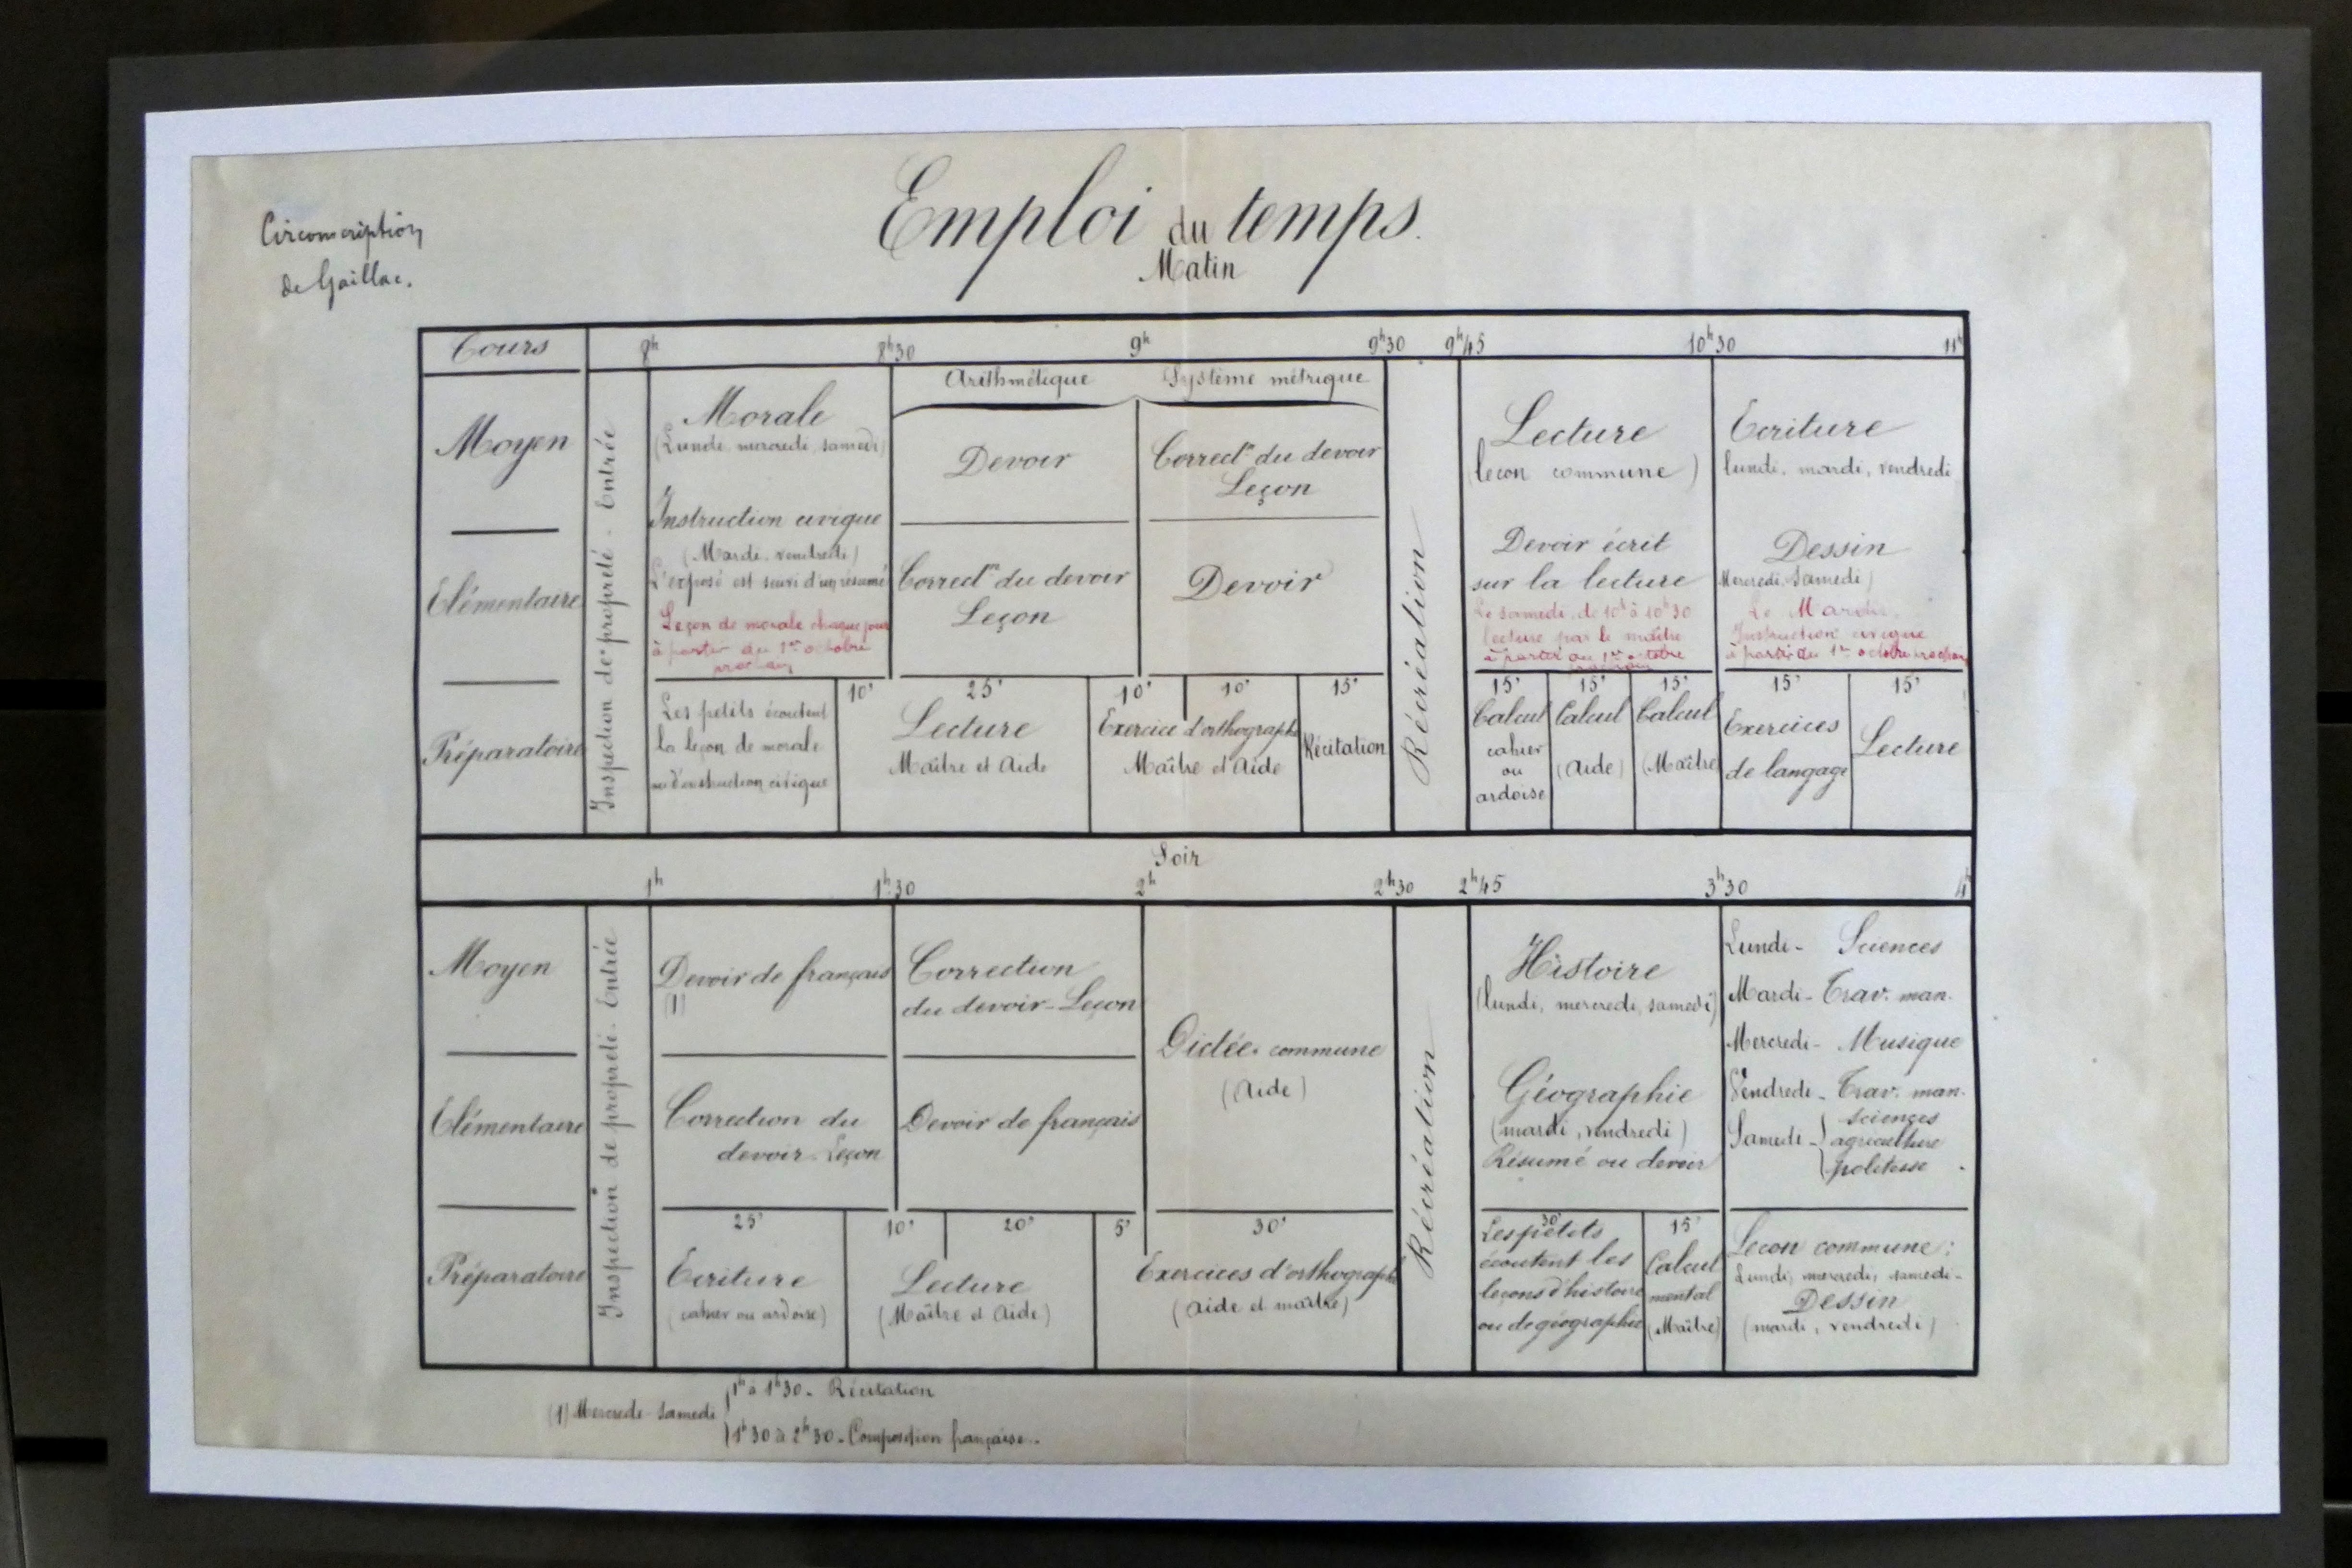 Circonscription
de Gaillac.
Emploi du temps.
Matin
Cours
8h 8h30 9h 9h30 9h45 10h30 11h
Moyen
Elémentaire
Préparatoire
Inspection de propreté. Entrée
Morale
(Lundi, mercredi, samedi)
Instruction civique
(Mardi, vendredi)
L'exposé est suivi d'un résumé
Leçon de morale chaque jour
à partir du 1er octobre
prochain
Arithmétique
Système métrique
Devoir
Correctn du devoir
Leçon
Correctn du devoir
Leçon
Devoir
Récréation
Lecture
(leçon commune)
Devoir écrit
sur la lecture
Le samedi, de 10h à 10h30
lecture par le maître
à partir du 1er octobre
prochain
Ecriture
lundi, mardi, vendredi
Dessin
Mercredi, Samedi)
Le Mardi,
Instruction civique
à partir du 1er octobre prochain
Les petits écoutent
la leçon de morale
ou d'instruction civique
10'
25'
Lecture
Maître et Aide
10' 10'
Exercice d'orthographe
Maître et Aide
15'
Récitation
15'
Calcul
cahier
ou
ardoise
15'
Calcul
(Aide)
15'
Calcul
(Maître)
15'
Exercices
de langage
15'
Lecture
Soir
1h 1h30 2h 2h30 2h45 3h30 4h
Moyen
Elémentaire
Préparatoire
Inspection de propreté. Entrée
Devoir de français
(1)
Correction
du devoir - Leçon
Correction du
devoir. Leçon
Devoir de français
Dictée commune
(Aide)
Récréation
Histoire
(lundi, mercredi, samedi)
Géographie
(mardi, vendredi)
Résumé ou devoir
Lundi - Sciences
Mardi - Trav. man.
Mercredi - Musique
Vendredi - Trav. man.
Samedi - { sciences
agriculture
politesse
25'
Ecriture
(cahier ou ardoise)
10' 20' 5'
Lecture
(Maître et Aide)
30'
Exercices d'orthographe
(Aide et maître)
30'
Les petits
écoutent les
leçons d'histoire
ou de géographie
15'
Calcul
mental
(Maître)
Leçon commune :
Lundi, mercredi, samedi -
Dessin
(mardi, vendredi)
(1) Mercredi - Samedi { 1h à 1h30. Récitation
1h30 à 2h30. Composition française.